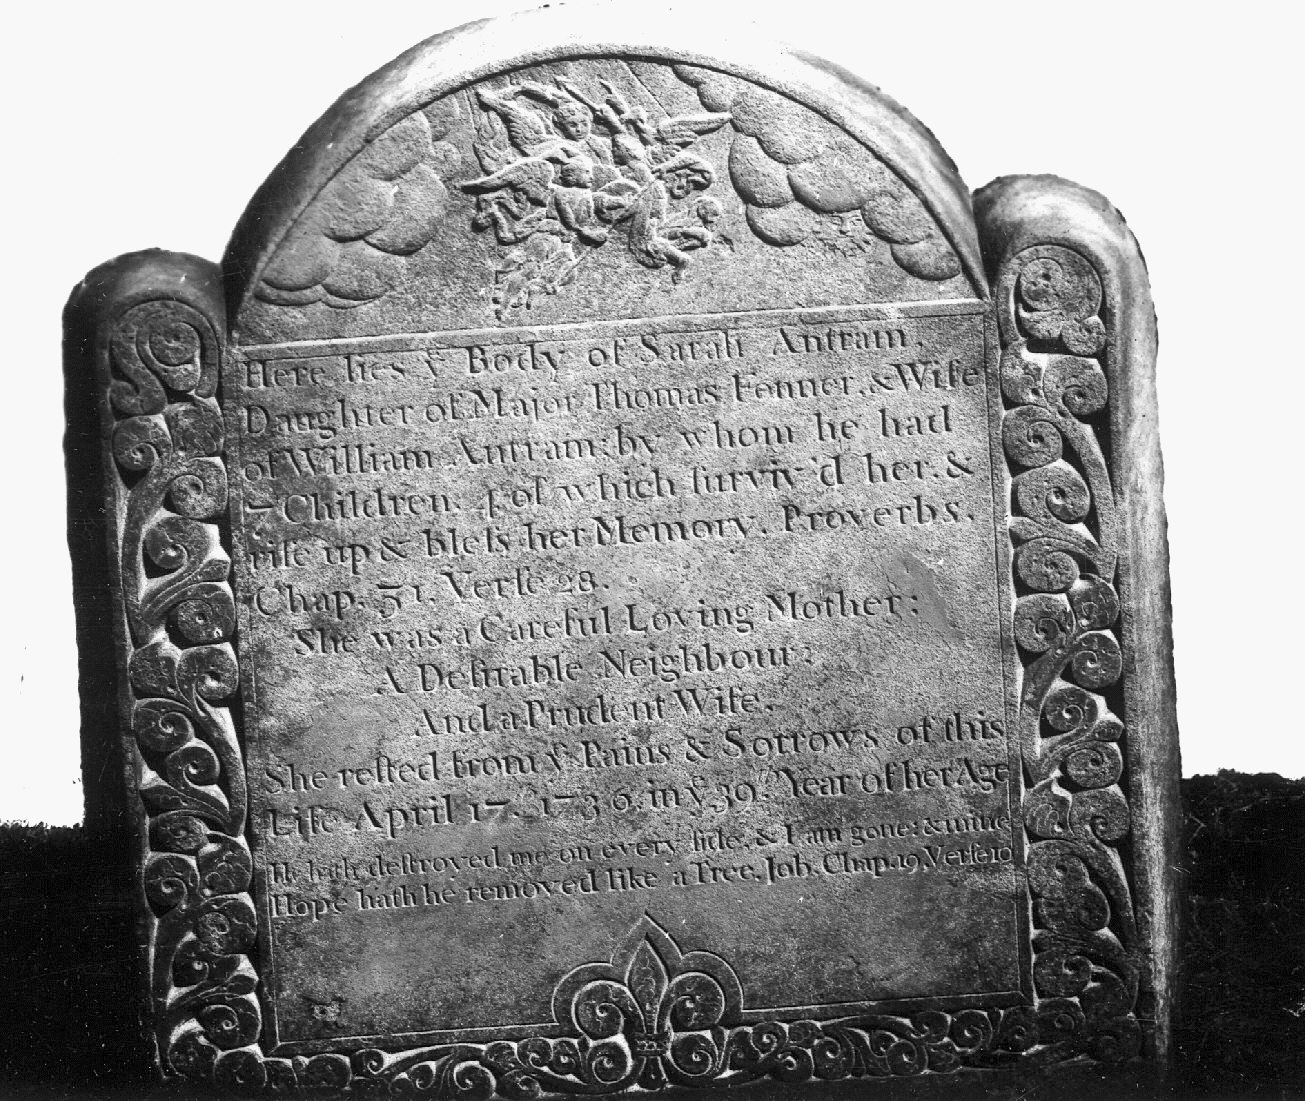 Here lies yͤ Body of Sarah Antram,
Daughter of Major Thomas Fenner, & Wife
of William Antram; by whom he had
7 Children, 4 of which ſurviv'd her, &
riſe up & bleſs her Memory, Proverbs,
Chap. 31. Verſe 28.
She was a Careful Loving Mother;
A Deſirable Neighbour;
And a Prudent Wife.
She reſted from yͤ Pains & Sorrows of this
Life April 17th 1736, in yͤ 39th Year of her Age
He hath deſtroyed me on every ſide, & I am gone; & mine
Hope hath he removed like a Tree. Job. Chap. 19, Verſe 10